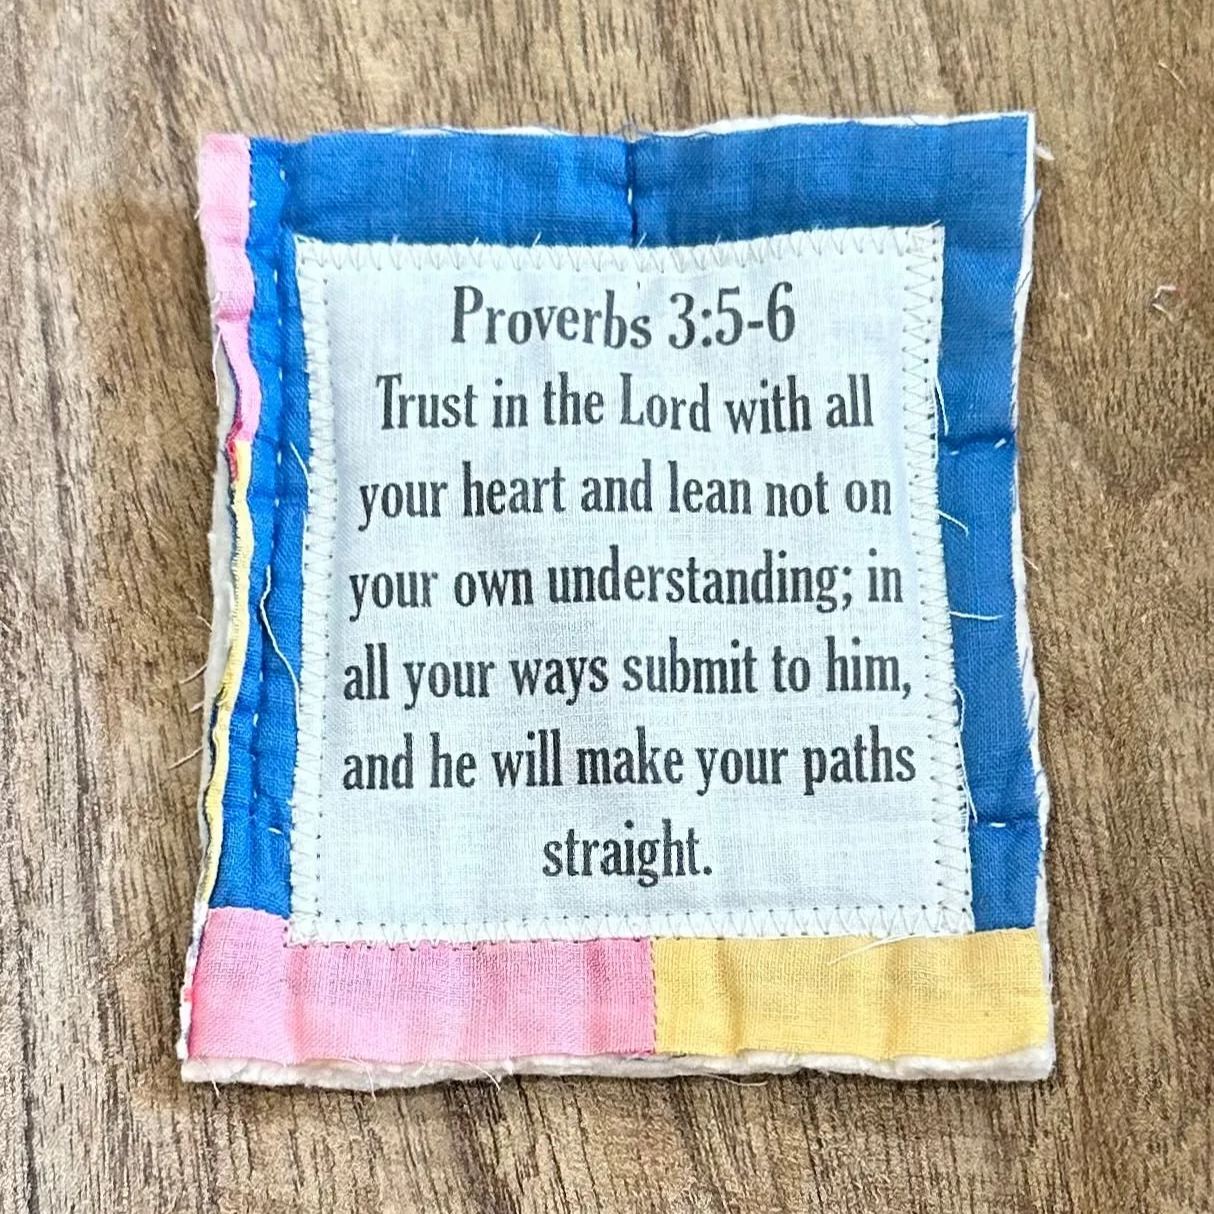 Proverbs 3:5-6
Trust in the Lord with all
your heart and lean not on
your own understanding; in
all your ways submit to him,
and he will make your paths
straight.